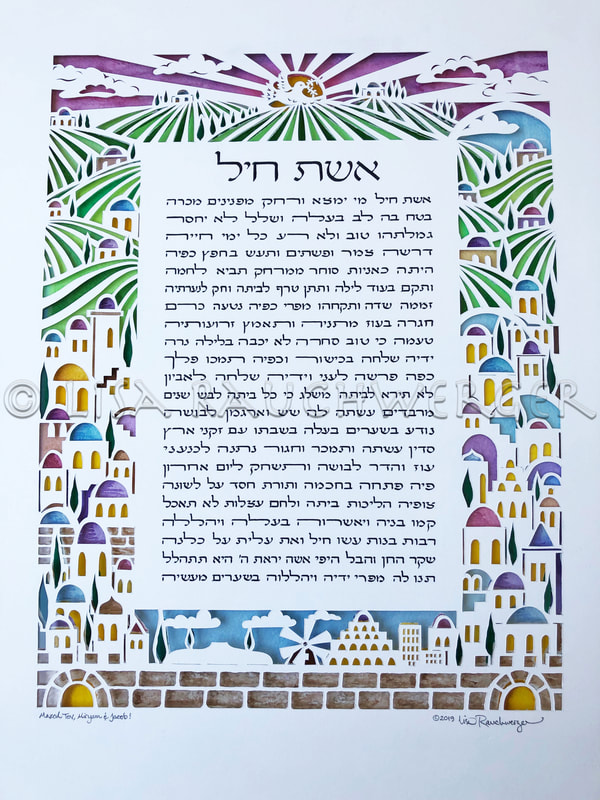 אשת חיל
אשת חיל מי ימצא ורחק מפנינים מכרה
בטח בה לב בעלה ושלל לא יחסר
גמלתהו טוב ולא רע כל ימי חייה
דרשה צמר ופשתים ותעש בחפץ כפיה
היתה כאניות סוחר ממרחק תביא לחמה
ותקם בעוד לילה ותתן טרף לביתה וחק לנערתיה
זממה שדה ותקחהו מפרי כפיה נטעה כרם
חגרה בעוז מתניה ותאמץ זרועותיה
טעמה כי טוב סחרה לא יכבה בלילה נרה
ידיה שלחה בכישור וכפיה תמכו פלך
כפה פרשה לעני וידיה שלחה לאביון
לא תירא לביתה משלג כי כל ביתה לבש שנים
מרבדים עשתה לה שש וארגמן לבושה
נודע בשערים בעלה בשבתו עם זקני ארץ
סדין עשתה ותמכר וחגור נתנה לכנעני
עוז והדר לבושה ותשחק ליום אחרון
פיה פתחה בחכמה ותורת חסד על לשונה
צופיה הליכות ביתה ולחם עצלות לא תאכל
קמו בניה ויאשרוה בעלה ויהללה
רבות בנות עשו חיל ואת עלית על כלנה
שקר החן והבל היפי אשה יראת ה' היא תתהלל
תנו לה מפרי ידיה ויהללוה בשערים מעשיה
© LISA RAUCHWERGER
Mazal Tov, Miryam & Jacob!
©2019 Lisa Rauchwerger